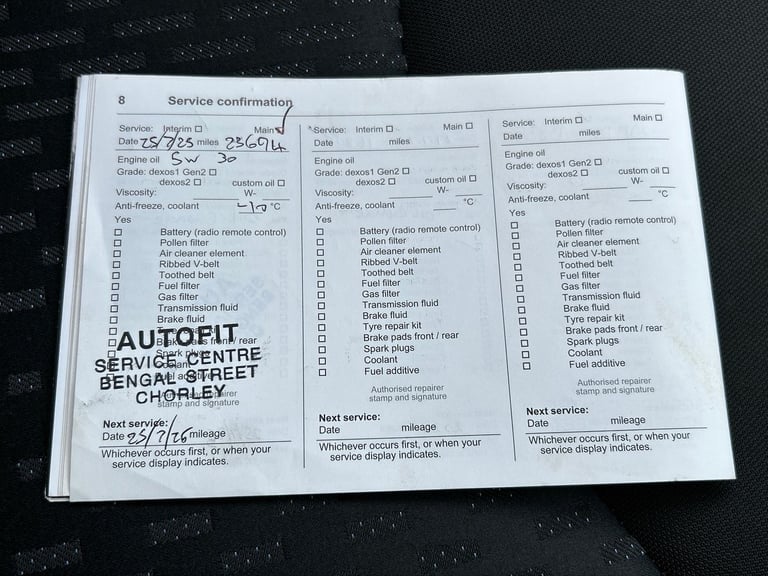 8 Service confirmation
Service: Interim ☐ Main ☑
Date 25/7/25 miles 23694
Engine oil 5W 30
Grade: dexos1 Gen2 ☐
dexos2 ☐ custom oil ☐
Viscosity: W-
Anti-freeze, coolant -10 °C
Yes
☐ Battery (radio remote control)
☐ Pollen filter
☐ Air cleaner element
☐ Ribbed V-belt
☐ Toothed belt
☐ Fuel filter
☐ Gas filter
☐ Transmission fluid
☐ Brake fluid
☐ Brake pads front / rear
☐ Spark plugs
☐ Coolant
☐ Fuel additive
AUTOFIT
SERVICE CENTRE
BENGAL STREET
CHORLEY
stamp and signature
Next service:
Date 25/7/26 mileage
Whichever occurs first, or when your
service display indicates.
Service: Interim ☐ Main ☐
Date miles
Engine oil
Grade: dexos1 Gen2 ☐
dexos2 ☐ custom oil ☐
Viscosity: W-
Anti-freeze, coolant °C
Yes
☐ Battery (radio remote control)
☐ Pollen filter
☐ Air cleaner element
☐ Ribbed V-belt
☐ Toothed belt
☐ Fuel filter
☐ Gas filter
☐ Transmission fluid
☐ Brake fluid
☐ Tyre repair kit
☐ Brake pads front / rear
☐ Spark plugs
☐ Coolant
☐ Fuel additive
Authorised repairer
stamp and signature
Next service:
Date mileage
Whichever occurs first, or when your
service display indicates.
Service: Interim ☐ Main ☐
Date miles
Engine oil
Grade: dexos1 Gen2 ☐
dexos2 ☐ custom oil ☐
Viscosity: W-
Anti-freeze, coolant °C
Yes
☐ Battery (radio remote control)
☐ Pollen filter
☐ Air cleaner element
☐ Ribbed V-belt
☐ Toothed belt
☐ Fuel filter
☐ Gas filter
☐ Transmission fluid
☐ Brake fluid
☐ Tyre repair kit
☐ Brake pads front / rear
☐ Spark plugs
☐ Coolant
☐ Fuel additive
Authorised repairer
stamp and signature
Next service:
Date mileage
Whichever occurs first, or when your
service display indicates.